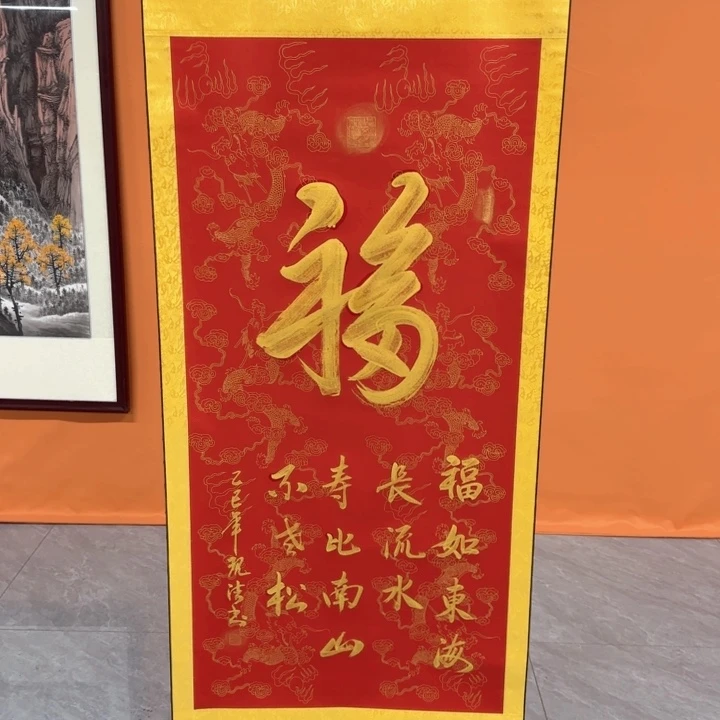 福
福如東海
長流水
寿比南山
不老松
乙巳年
书